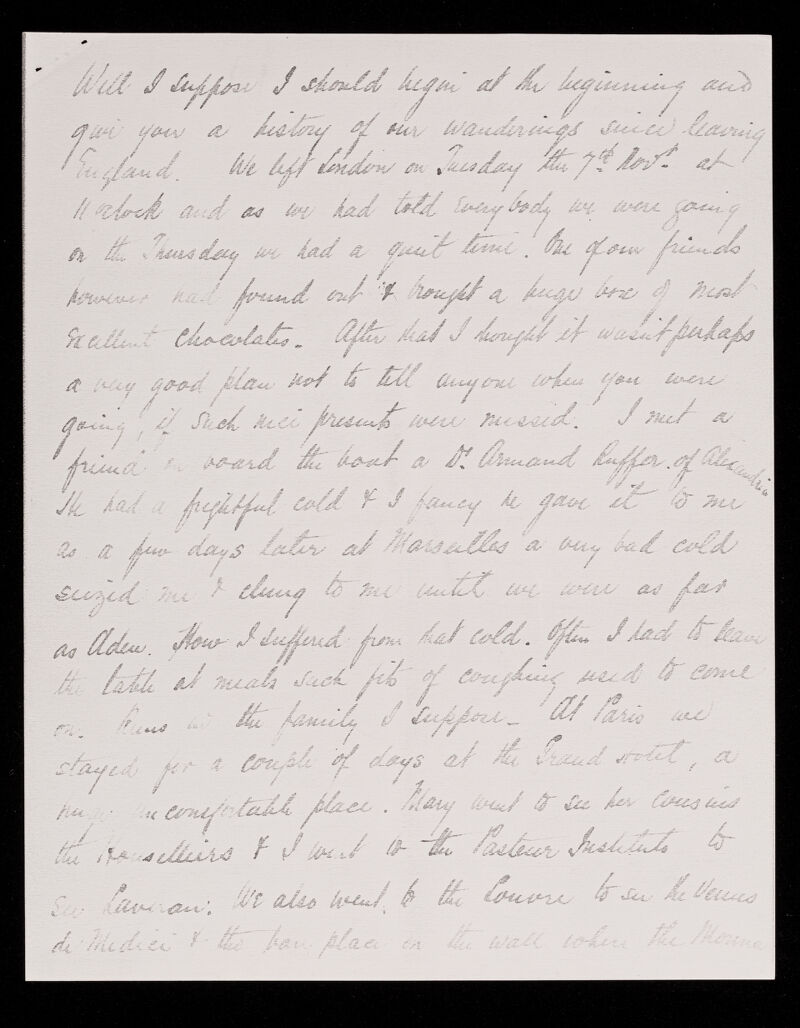 Well I suppose I should begin at the beginning and
give you a history of our wanderings since leaving
England. We left London on Tuesday the 7th Novr. at
11 oclock and as we had told everybody we were going
on the Thursday we had a quiet time. One of our friends
however had found out & brought a huge box of most
excellent chocolates. After that I thought it wasn't perhaps
a very good plan not to tell anyone when you were
going, if such nice presents were missed. I met a
friend on board the boat a Dr. Armand Ruffer of Alexandria
He had a frightful cold & I fancy he gave it to me
as a few days later at Marseilles a very bad cold
seized me & clung to me until we were as far
as Aden. How I suffered from that cold. Often I had to leave
the table at meals such fits of coughing used to come
on. Runs in the family I suppose. At Paris we
stayed for a couple of days at the Grand Hotel, a
huge uncomfortable place. Mary went to see her cousins
the & I went to the Pasteur Institute to
see Laveran. We also went to the Louvre to see the Venus
de Medici & the bare place on the wall where the Monna